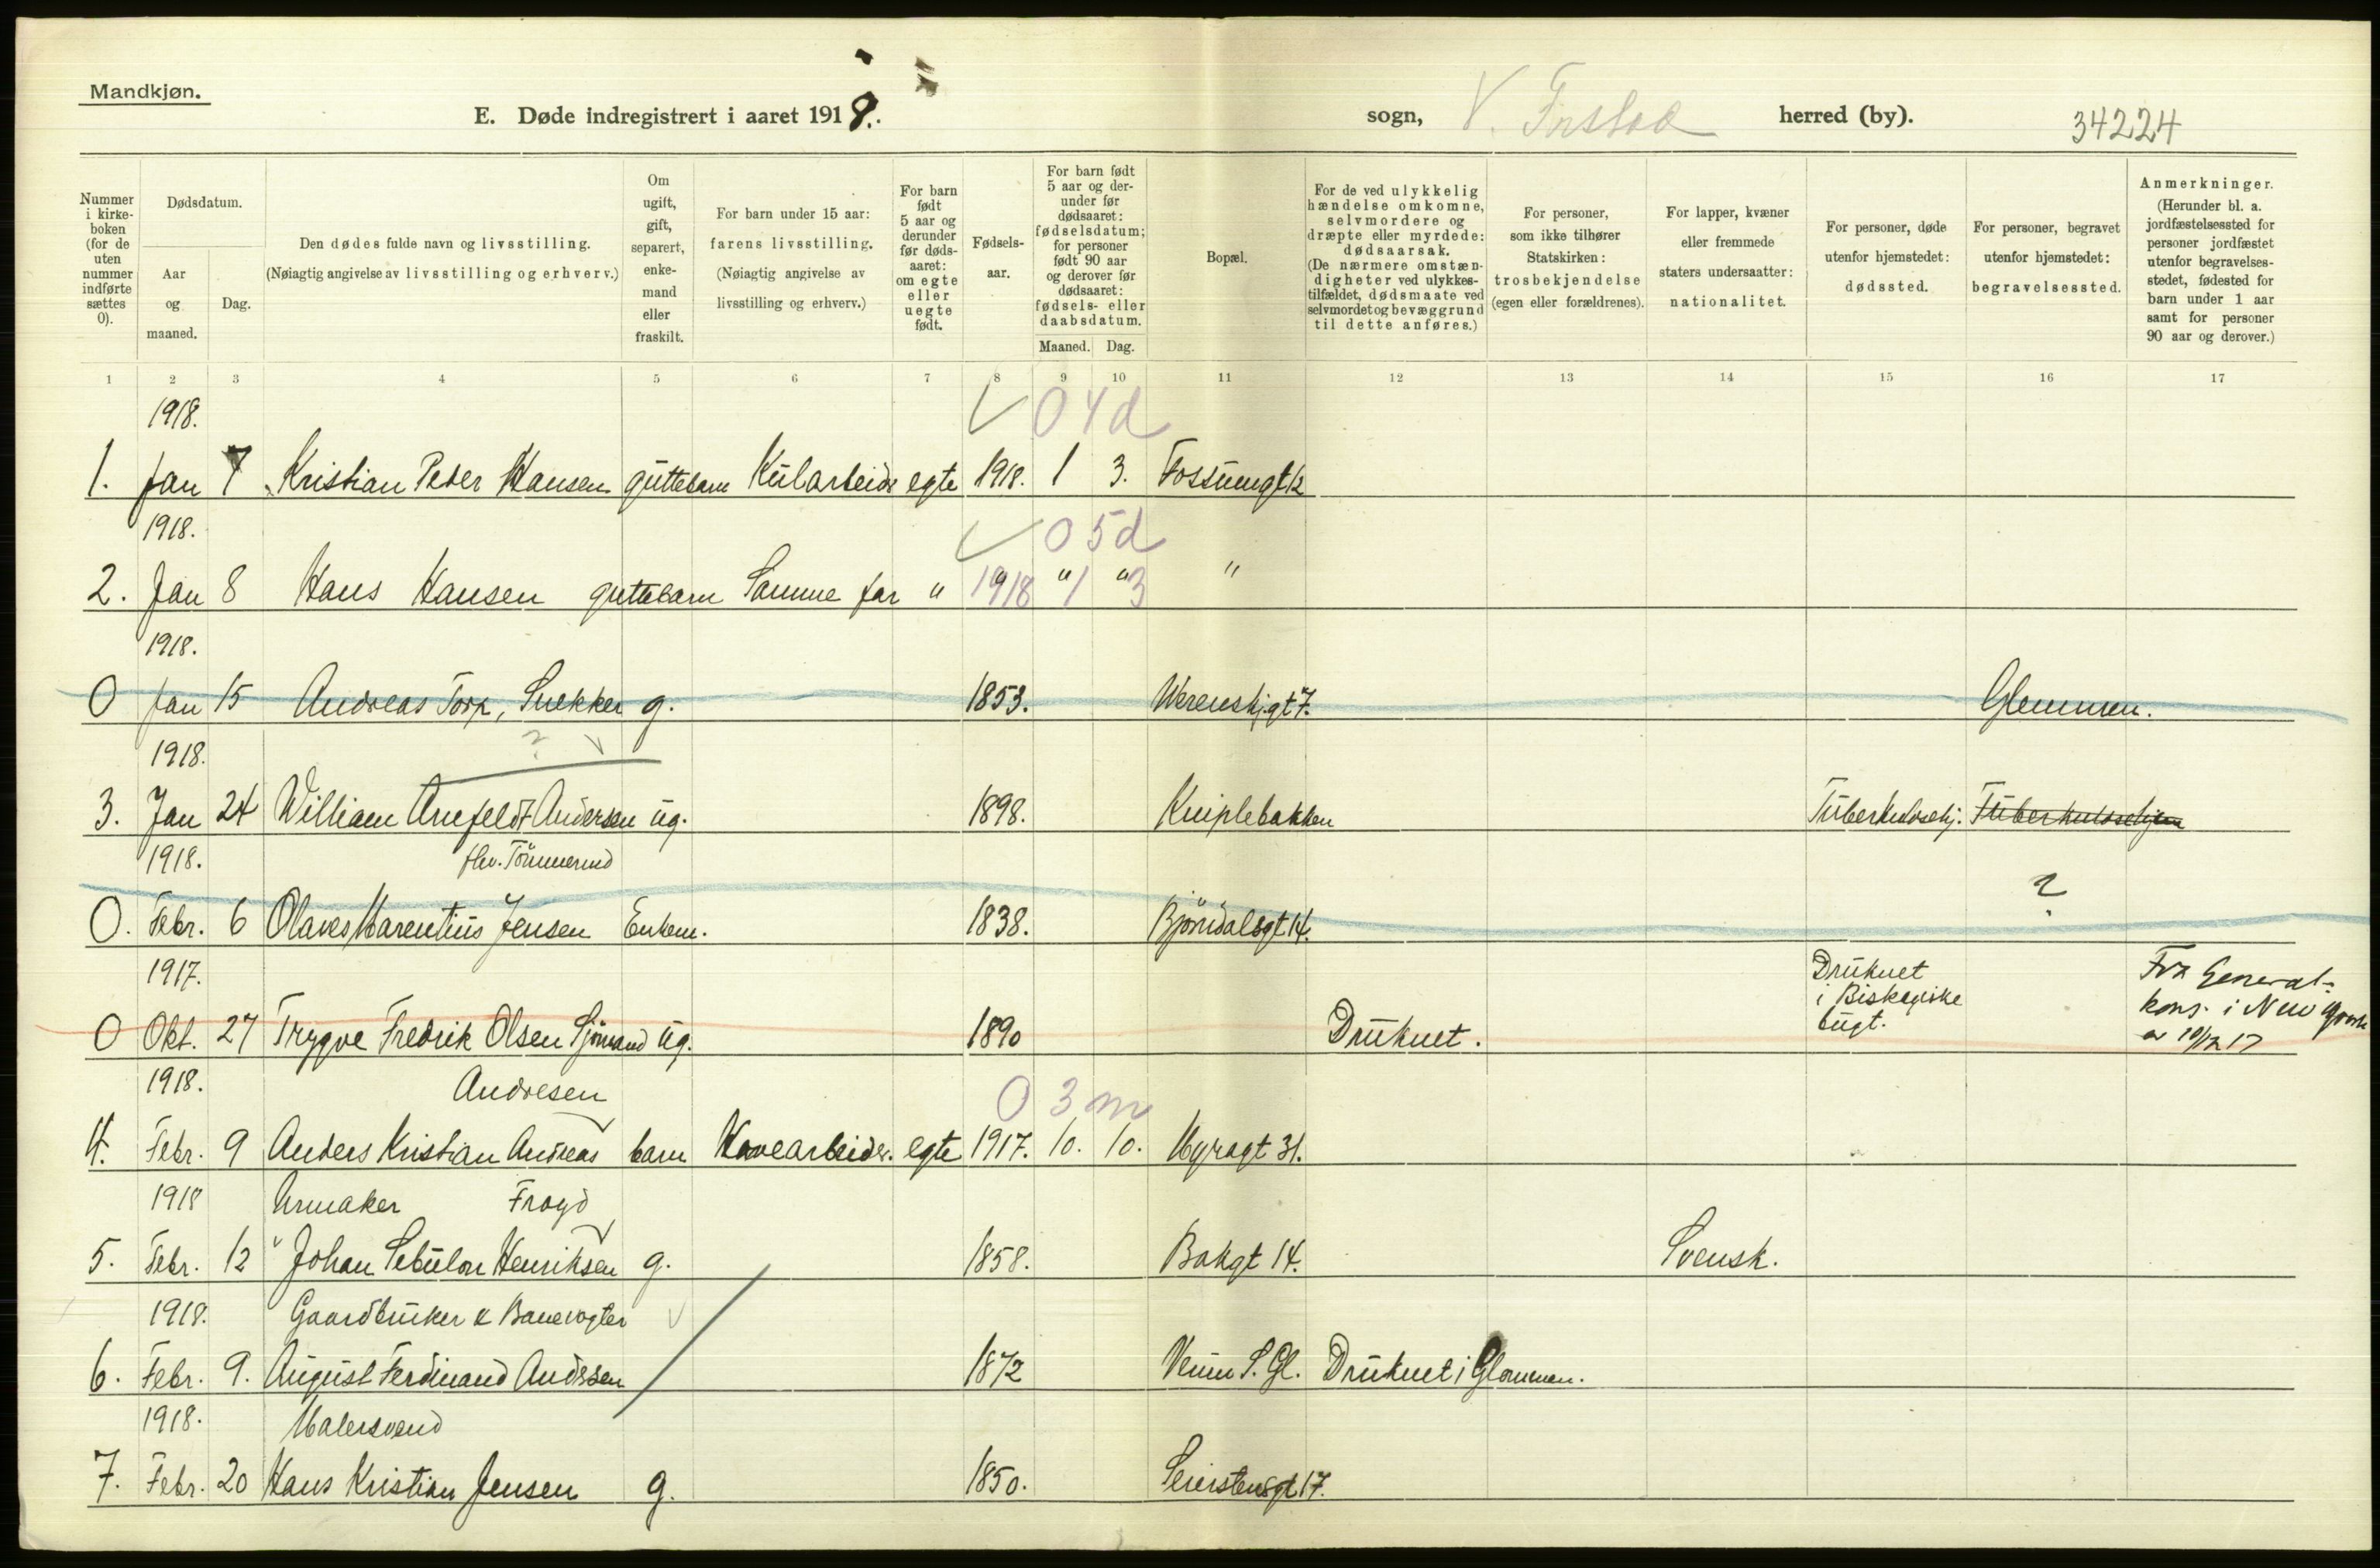 Mandkjøn.
E. Døde indregistrert i aaret 1918.
sogn, V. Frstad herred (by). 34224
Nummer i kirke-boken (for de uten nummer indførte sættes 0).
Dødsdatum.
Aar og maaned.
Dag.
Den dødes fulde navn og livsstilling. (Nøiagtig angivelse av livsstilling og erhverv.)
Om ugift, gift, separert, enke-mand eller fraskilt.
For barn under 15 aar: farens livsstilling. (Nøiagtig angivelse av livsstilling og erhverv.)
For barn født 5 aar og derunder før døds-aaret: om egte eller uegte født.
Fødsels-aar.
For barn født 5 aar og der-under før dødsaaret: fødselsdatum; for personer født 90 aar og derover før dødsaaret: fødsels- eller daabsdatum.
Maaned. Dag.
Bopæl.
For de ved ulykkelig hændelse omkomne, selvmordere og dræpte eller myrdede: dødsaarsak. (De nærmere omstæn-digheter ved ulykkes-tilfældet, dødsmaate ved selvmordet og bevæggrund til dette anføres.)
For personer, som ikke tilhører Statskirken: trosbekjendelse (egen eller forældrenes).
For lapper, kvæner eller fremmede staters undersaatter: nationalitet.
For personer, døde utenfor hjemstedet: dødssted.
For personer, begravet utenfor hjemstedet: begravelsessted.
Anmerkninger. (Herunder bl. a. jordfæstelsessted for personer jordfæstet utenfor begravelses-stedet, fødested for barn under 1 aar samt for personer 90 aar og derover.)
1 2 3 4 5 6 7 8 9 10 11 12 13 14 15 16 17
1918. 0 4 d
1. Jan 7 Kristian Peder Hansen guttebarn Kularbeid egte 1918. 1 3. Fossumgt 12
1918. 0 5 d
2. Jan 8 Hans Hansen guttebarn Samme far " 1918 " 1 " 3 "
1918.
0 Jan 15 Andreas Torp, Snekker g. 1853. Werenskjgt 7. Glemmen.
1918. ?
3. Jan 24 William Arnfeldt Andersen ug. 1898. Kniplebakken Tuberkulosehj. Tuberkulosehjem
1918. fhv. Tömmermd ?
0. Febr. 6 Olaves Marentius Jensen Enkem. 1838. Björndalsgt 14.
1917. Druknet i Biskayiske bugt. Fra General-kons. i New York av 10/12 17
0 Okt. 27 Trygve Fredrik Olsen Sjömand ug. 1890 Druknet.
1918. Andresen 0 3 m
4. Febr. 9 Anders Kristian Andreas barn Havearbeider. egte 1917. 10. 10. Myragt 31.
1918 Urmaker Frogd
5. Febr. 12 " Johan Sebulon Henriksen g. 1858. Bakgt 14. Svensk.
1918. Gaardbruker & Banevogter
6. Febr. 9. August Ferdinand Andersen 1872 Veum S. Gl. Druknet i Glommen.
1918. Malersvend
7. Febr. 20 Hans Kristian Jensen g. 1850. Seierstensgt 17.